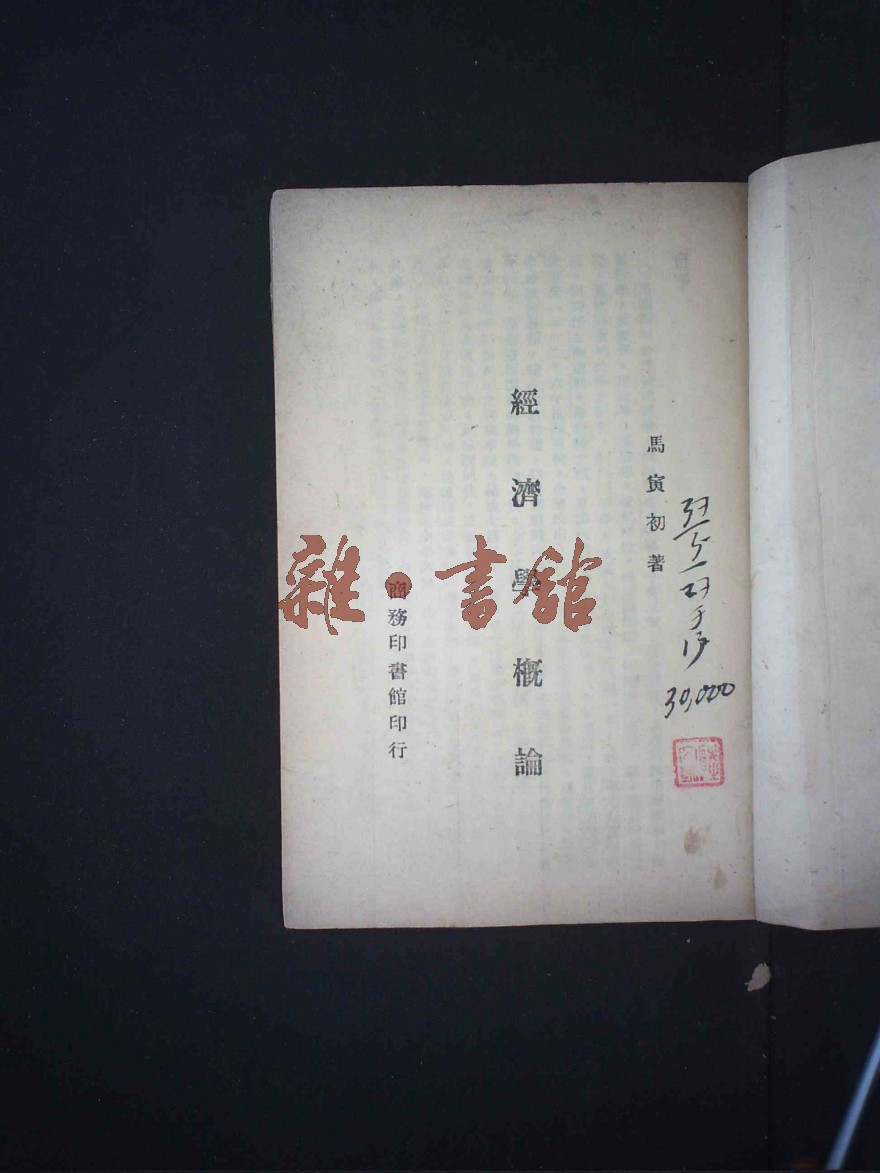 馬寅初著
經濟學概論
商務印書館印行
雜·書館
30,000